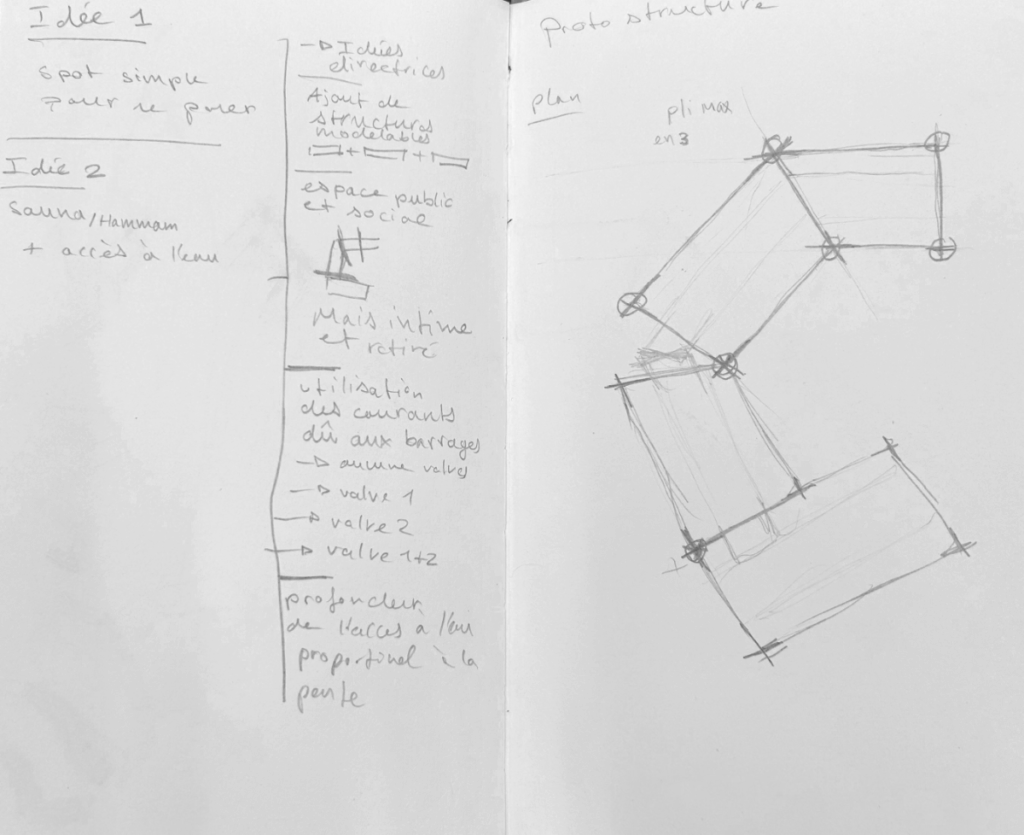 Idée 1
spot simple
pour se poser
Idée 2
Sauna/Hammam
+ accès à l'eau
→ Idées
directrices
Ajout de
structures
modelables
+ +
espace public
et social
Mais intime
et retiré
utilisation
des courants
dû aux barrages
→ aucune valves
→ valve 1
→ valve 2
→ valve 1+2
profondeur
de l'acces a l'eau
proportinel à la
pente
Proto structure
plan
pli max
en 3